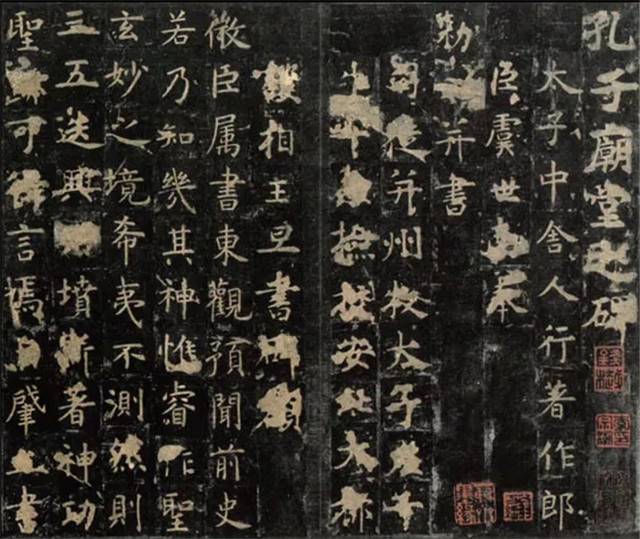 孔子廟堂之碑
太子中舍人行著作郎
臣虞世南奉
勑并書
司徒并州牧太子左千
牛率兼檢校安北大都
護相王旦書碑額
微臣属書東觀預聞前史
若乃知幾其神惟睿作聖
玄妙之境希夷不測然則
三五迭興墳斯著神功
聖迹可得言焉自肇立書